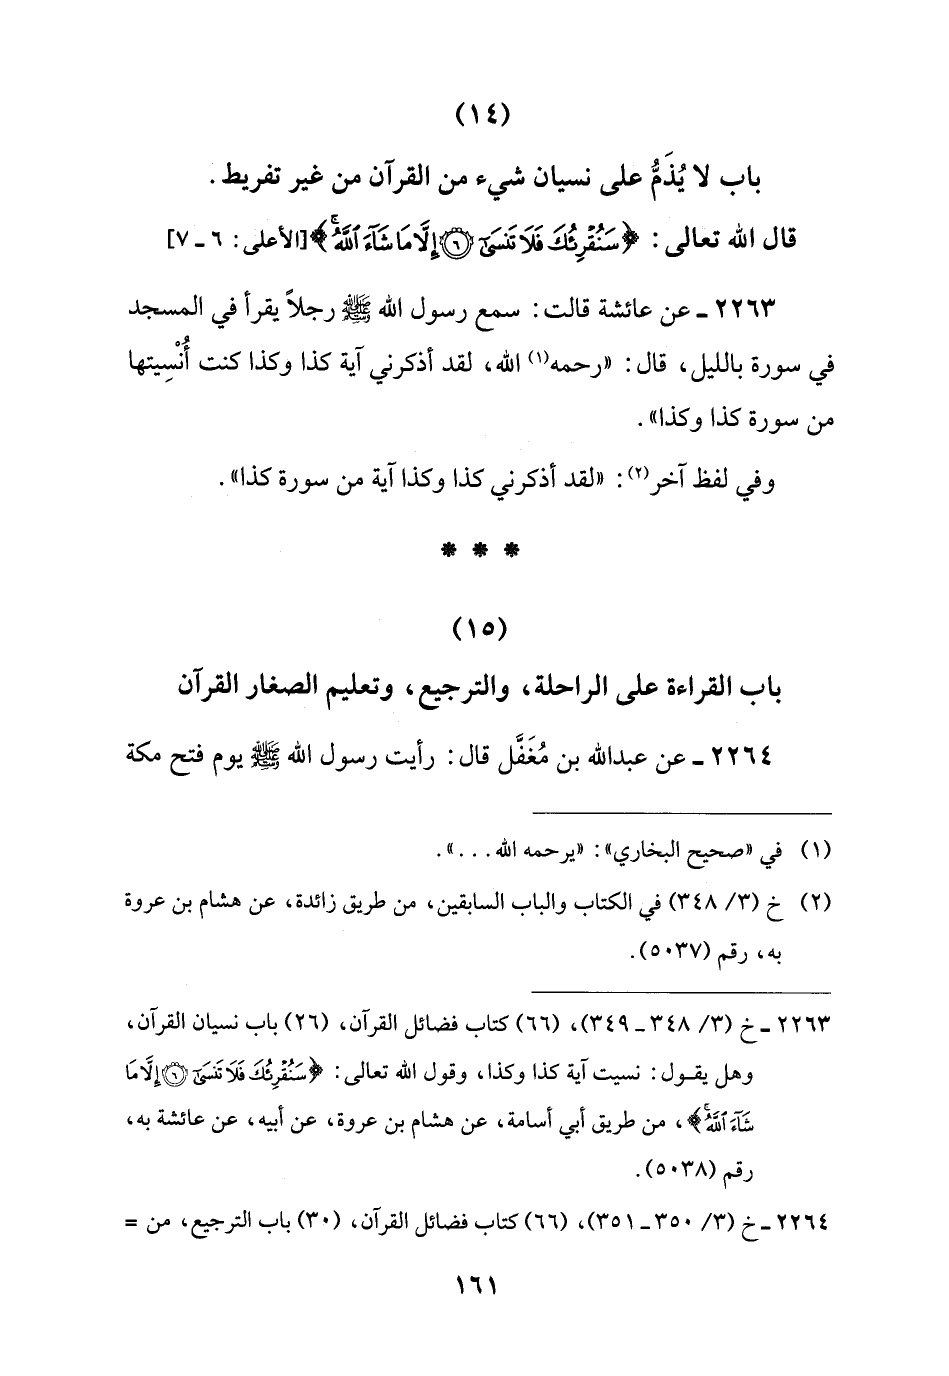 (١٤)
باب لا يُذَمُّ على نسيان شيء من القرآن من غير تفريط.
قال الله تعالى: ﴿سَنُقْرِئُكَ فَلَا تَنسَىٰٓ ۝٦ إِلَّا مَا شَآءَ ٱللَّهُۚ﴾ [الأعلى: ٦ ـ ٧]
٢٢٦٣ ـ عن عائشة قالت: سمع رسول الله ﷺ رجلاً يقرأ في المسجد
في سورة بالليل، قال: «رحمه(١) الله، لقد أذكرني آية كذا وكذا كنت أُنْسِيتُها
من سورة كذا وكذا».
وفي لفظ آخر(٢): «لقد أذكرني كذا وكذا آية من سورة كذا».
* * *
(١٥)
باب القراءة على الراحلة، والترجيع، وتعليم الصغار القرآن
٢٢٦٤ ـ عن عبدالله بن مُغَفَّل قال: رأيت رسول الله ﷺ يوم فتح مكة
(١) في «صحيح البخاري»: «يرحمه الله...».
(٢) خ (٣/ ٣٤٨) في الكتاب والباب السابقين، من طريق زائدة، عن هشام بن عروة
به، رقم (٥٠٣٧).
٢٢٦٣ ـ خ (٣/ ٣٤٨ ـ ٣٤٩)، (٦٦) كتاب فضائل القرآن، (٢٦) باب نسيان القرآن،
وهل يقول: نسيت آية كذا وكذا، وقول الله تعالى: ﴿سَنُقْرِئُكَ فَلَا تَنسَىٰٓ ۝٦ إِلَّا مَا
شَآءَ ٱللَّهُۚ﴾، من طريق أبي أسامة، عن هشام بن عروة، عن أبيه، عن عائشة به،
رقم (٥٠٣٨).
٢٢٦٤ ـ خ (٣/ ٣٥٠ ـ ٣٥١)، (٦٦) كتاب فضائل القرآن، (٣٠) باب الترجيع، من =
١٦١